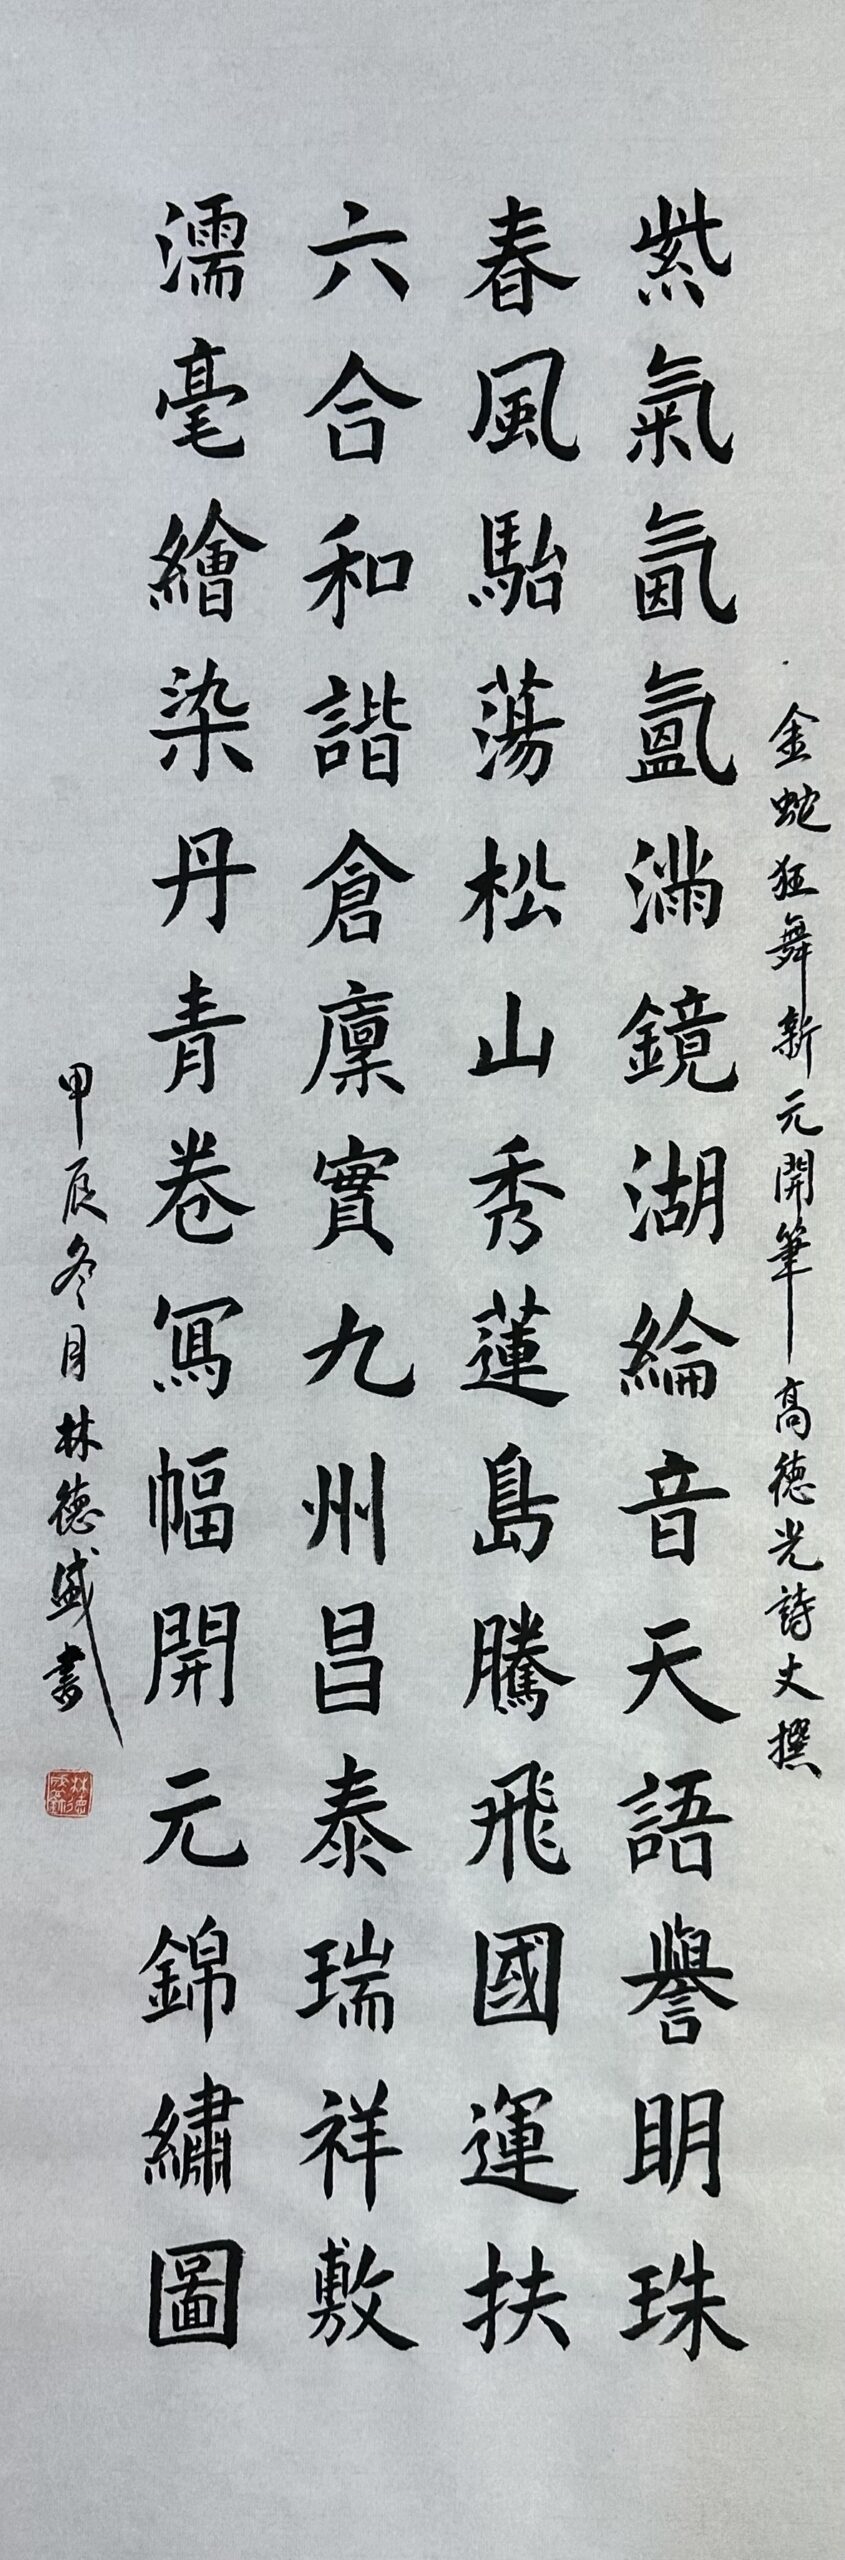 金蛇狂舞新元開筆高德光詩丈撰
紫氣氤氳滿鏡湖綸音天語譽明珠
春風駘蕩松山秀蓮島騰飛國運扶
六合和諧倉廩實九州昌泰瑞祥敷
濡毫繪染丹青卷寫幅開元錦繡圖
甲辰冬月林德盛書